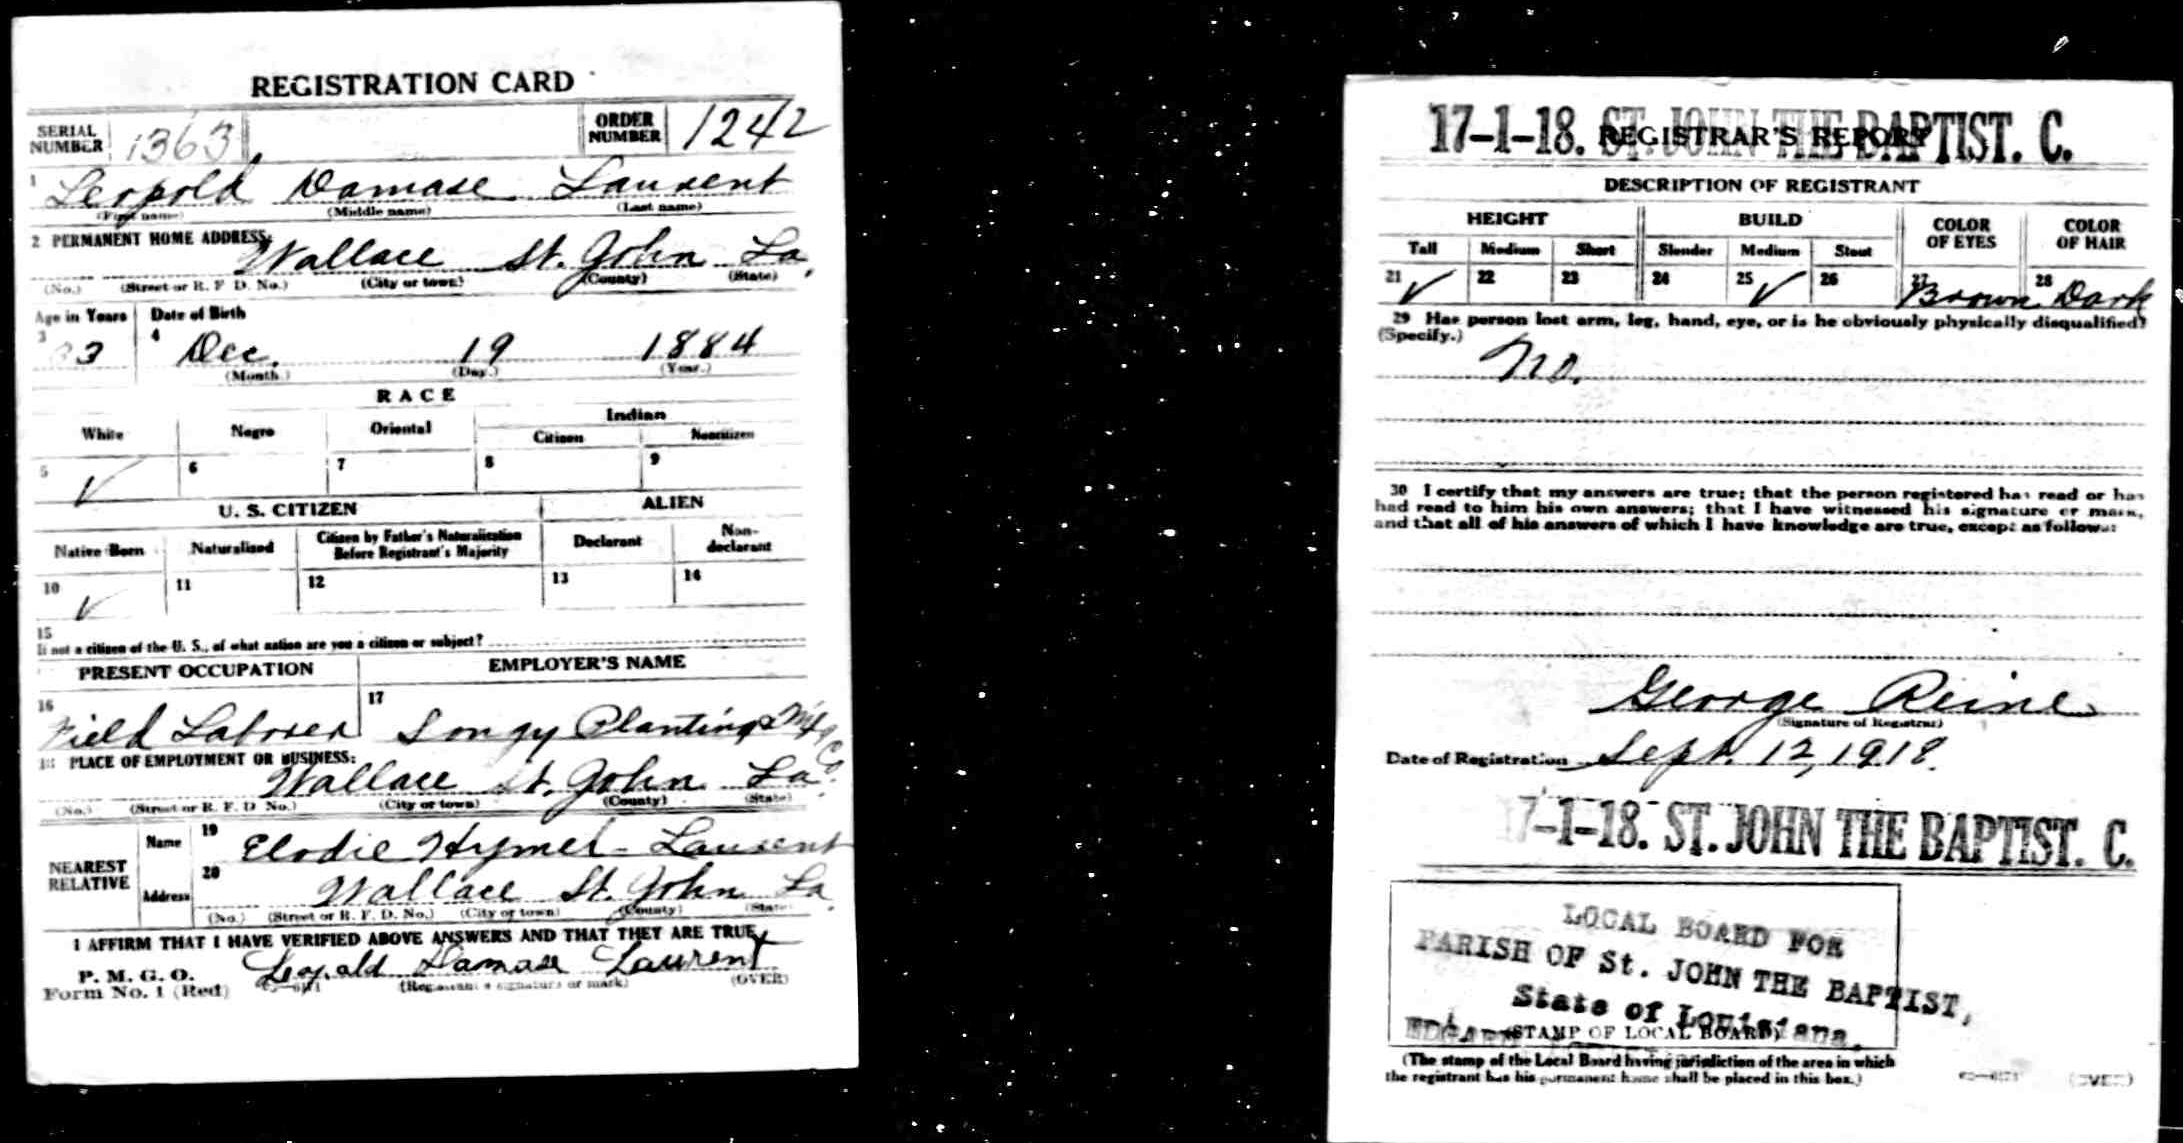 REGISTRATION CARD
SERIAL NUMBER 1363 ORDER NUMBER 1242
1 Leopold Damase Laurent
(First name) (Middle name) (Last name)
2 PERMANENT HOME ADDRESS:
Wallace St. John La.
(No.) (Street or R. F. D. No.) (City or town) (County) (State)
Age in Years Date of Birth
3 33 4 Dec. 19 1884
(Month.) (Day.) (Year.)
RACE
White Negro Oriental Indian
Citizen Noncitizen
5 ✓ 6 7 8 9
U. S. CITIZEN ALIEN
Native Born Naturalized Citizen by Father's Naturalization Before Registrant's Majority Declarant Non-declarant
10 ✓ 11 12 13 14
15
If not a citizen of the U. S., of what nation are you a citizen or subject?
PRESENT OCCUPATION EMPLOYER'S NAME
16 Field Laborer 17 Songy Planting & Mfg Co.
18 PLACE OF EMPLOYMENT OR BUSINESS:
Wallace St. John La.
(No.) (Street or R. F. D. No.) (City or town) (County) (State)
NEAREST RELATIVE
Name 19 Elodie Hymel - Laurent
Address 20 Wallace St. John La.
(No.) (Street or R. F. D. No.) (City or town) (County) (State)
I AFFIRM THAT I HAVE VERIFIED ABOVE ANSWERS AND THAT THEY ARE TRUE
P. M. G. O.
Form No. 1 (Red)
Leopold Damase Laurent
(Registrant's signature or mark) (OVER)
17-1-18. ST. JOHN THE BAPTIST. C.
REGISTRAR'S REPORT
DESCRIPTION OF REGISTRANT
HEIGHT BUILD COLOR OF EYES COLOR OF HAIR
Tall Medium Short Slender Medium Stout
21 ✓ 22 23 24 25 ✓ 26 27 Brown 28 Dark
29 Has person lost arm, leg, hand, eye, or is he obviously physically disqualified?
(Specify.)
No.
30 I certify that my answers are true; that the person registered has read or has
had read to him his own answers; that I have witnessed his signature or mark,
and that all of his answers of which I have knowledge are true, except as follows:
George Reine
(Signature of Registrar)
Date of Registration Sept. 12, 1918.
7-1-18. ST. JOHN THE BAPTIST. C.
LOCAL BOARD FOR
PARISH OF St. JOHN THE BAPTIST,
State of Louisiana.
(STAMP OF LOCAL BOARD)
(The stamp of the Local Board having jurisdiction of the area in which
the registrant has his permanent home shall be placed in this box.)
(OVER)